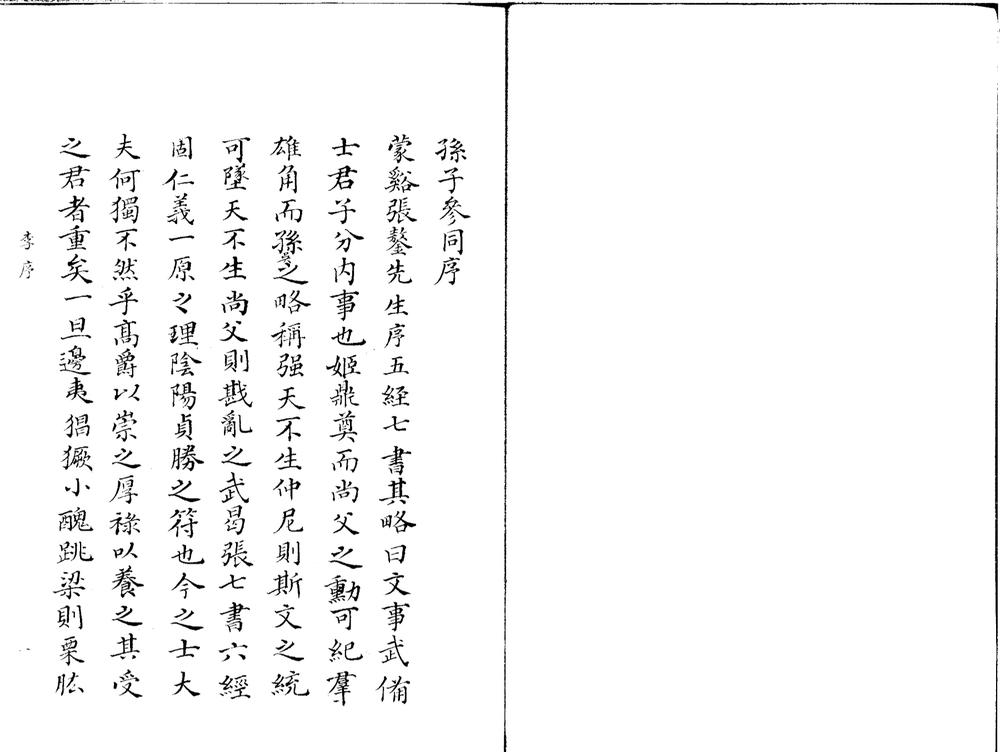 孫子參同序
蒙谿張鏊先生序五經七書其略曰文事武備
士君子分内事也姬鼎奠而尚父之勳可紀羣
雄角而孫之略稱强天不生仲尼則斯文之統
可墜天不生尚父則戡亂之武曷張七書六經
固仁義一原之理陰陽貞勝之符也今之士大
夫何獨不然乎髙爵以崇之厚祿以養之其受
之君者重矣一旦邊夷猖獗小醜跳梁則栗肱
李序
一